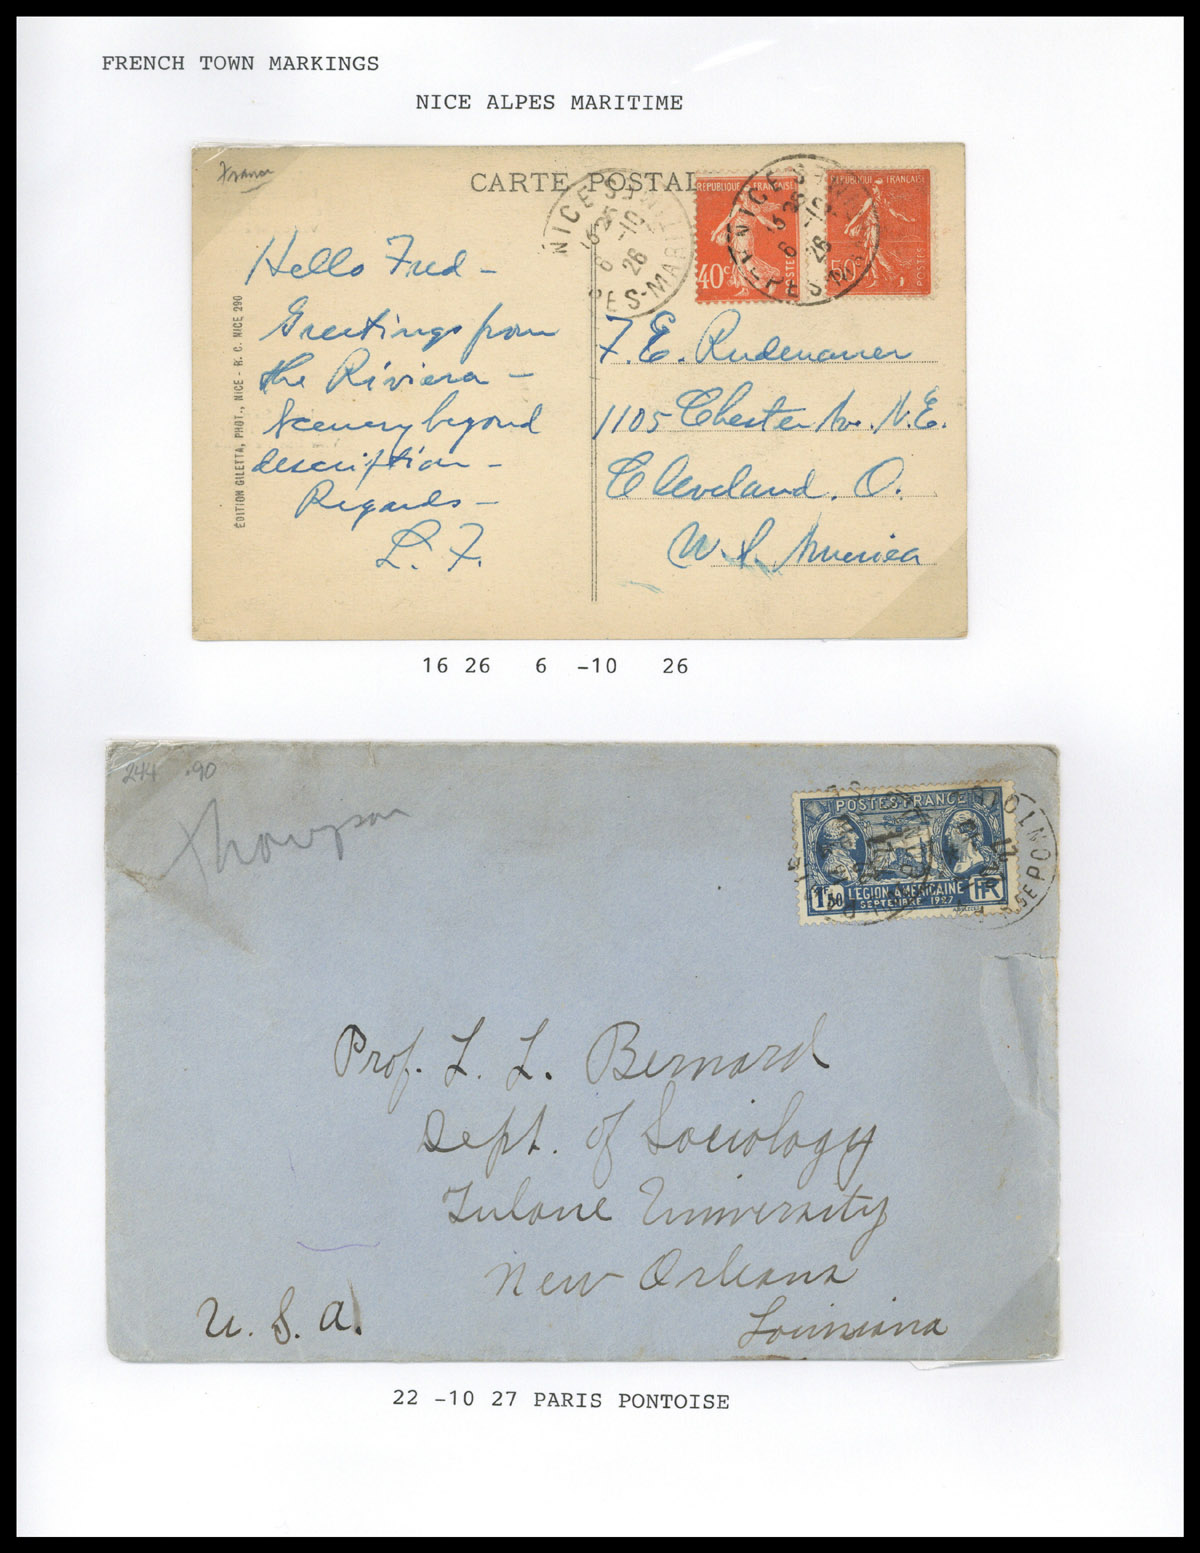 FRENCH TOWN MARKINGS
NICE ALPES MARITIME
France
CARTE POSTAL
NICE
6 -10
26
PES-MARIT
REPUBLIQUE FRANÇAISE
40c
POSTES
NICE
6 -10
26
PES-MAR
REPUBLIQUE FRANÇAISE
50c
POSTES
ÉDITION GILETTA, PHOT., NICE - R. C. NICE 290
Hello Fred -
Greetings from
the Riviera -
Scenery beyond
description -
Regards -
L. F.
F. E. Rudenauer
1105 Chester Av. N.E.
Cleveland. O.
U. S. America
16 26 6 -10 26
244 .90
Thompson
POSTES FRANCE
1f50
LEGION AMERICAINE
SEPTEMBRE 1927
RF
PONTOIS
Prof. L. L. Bernard
Dept. of Sociology
Tulane University
New Orleans
Louisiana
U. S. A.
22 -10 27 PARIS PONTOISE